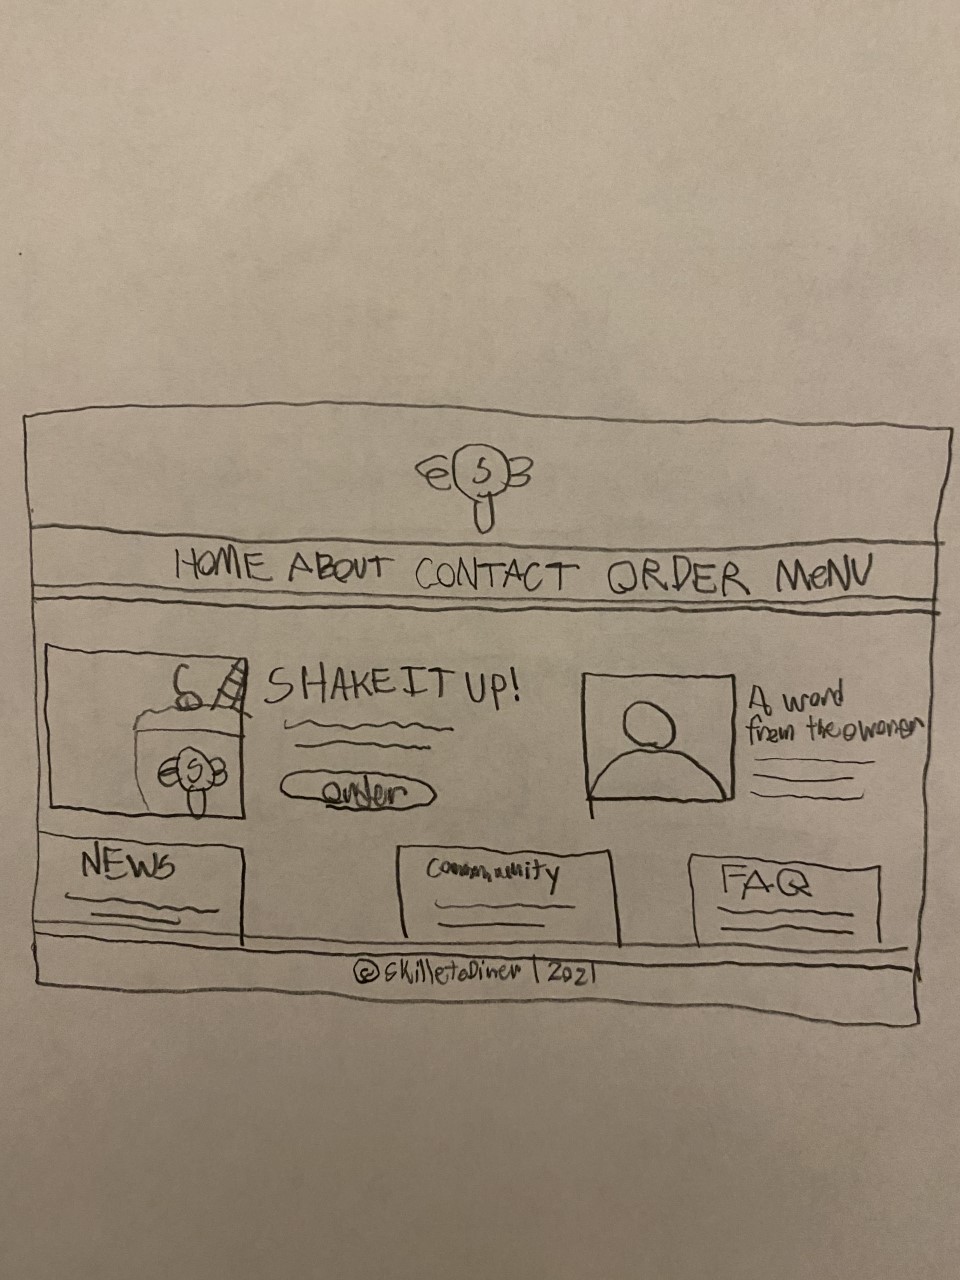 S
HOME ABOUT CONTACT ORDER MENU
SHAKE IT UP!
order
S
A word
from the owoner
NEWS
Community
FAQ
© SkilletoDiner | 2021